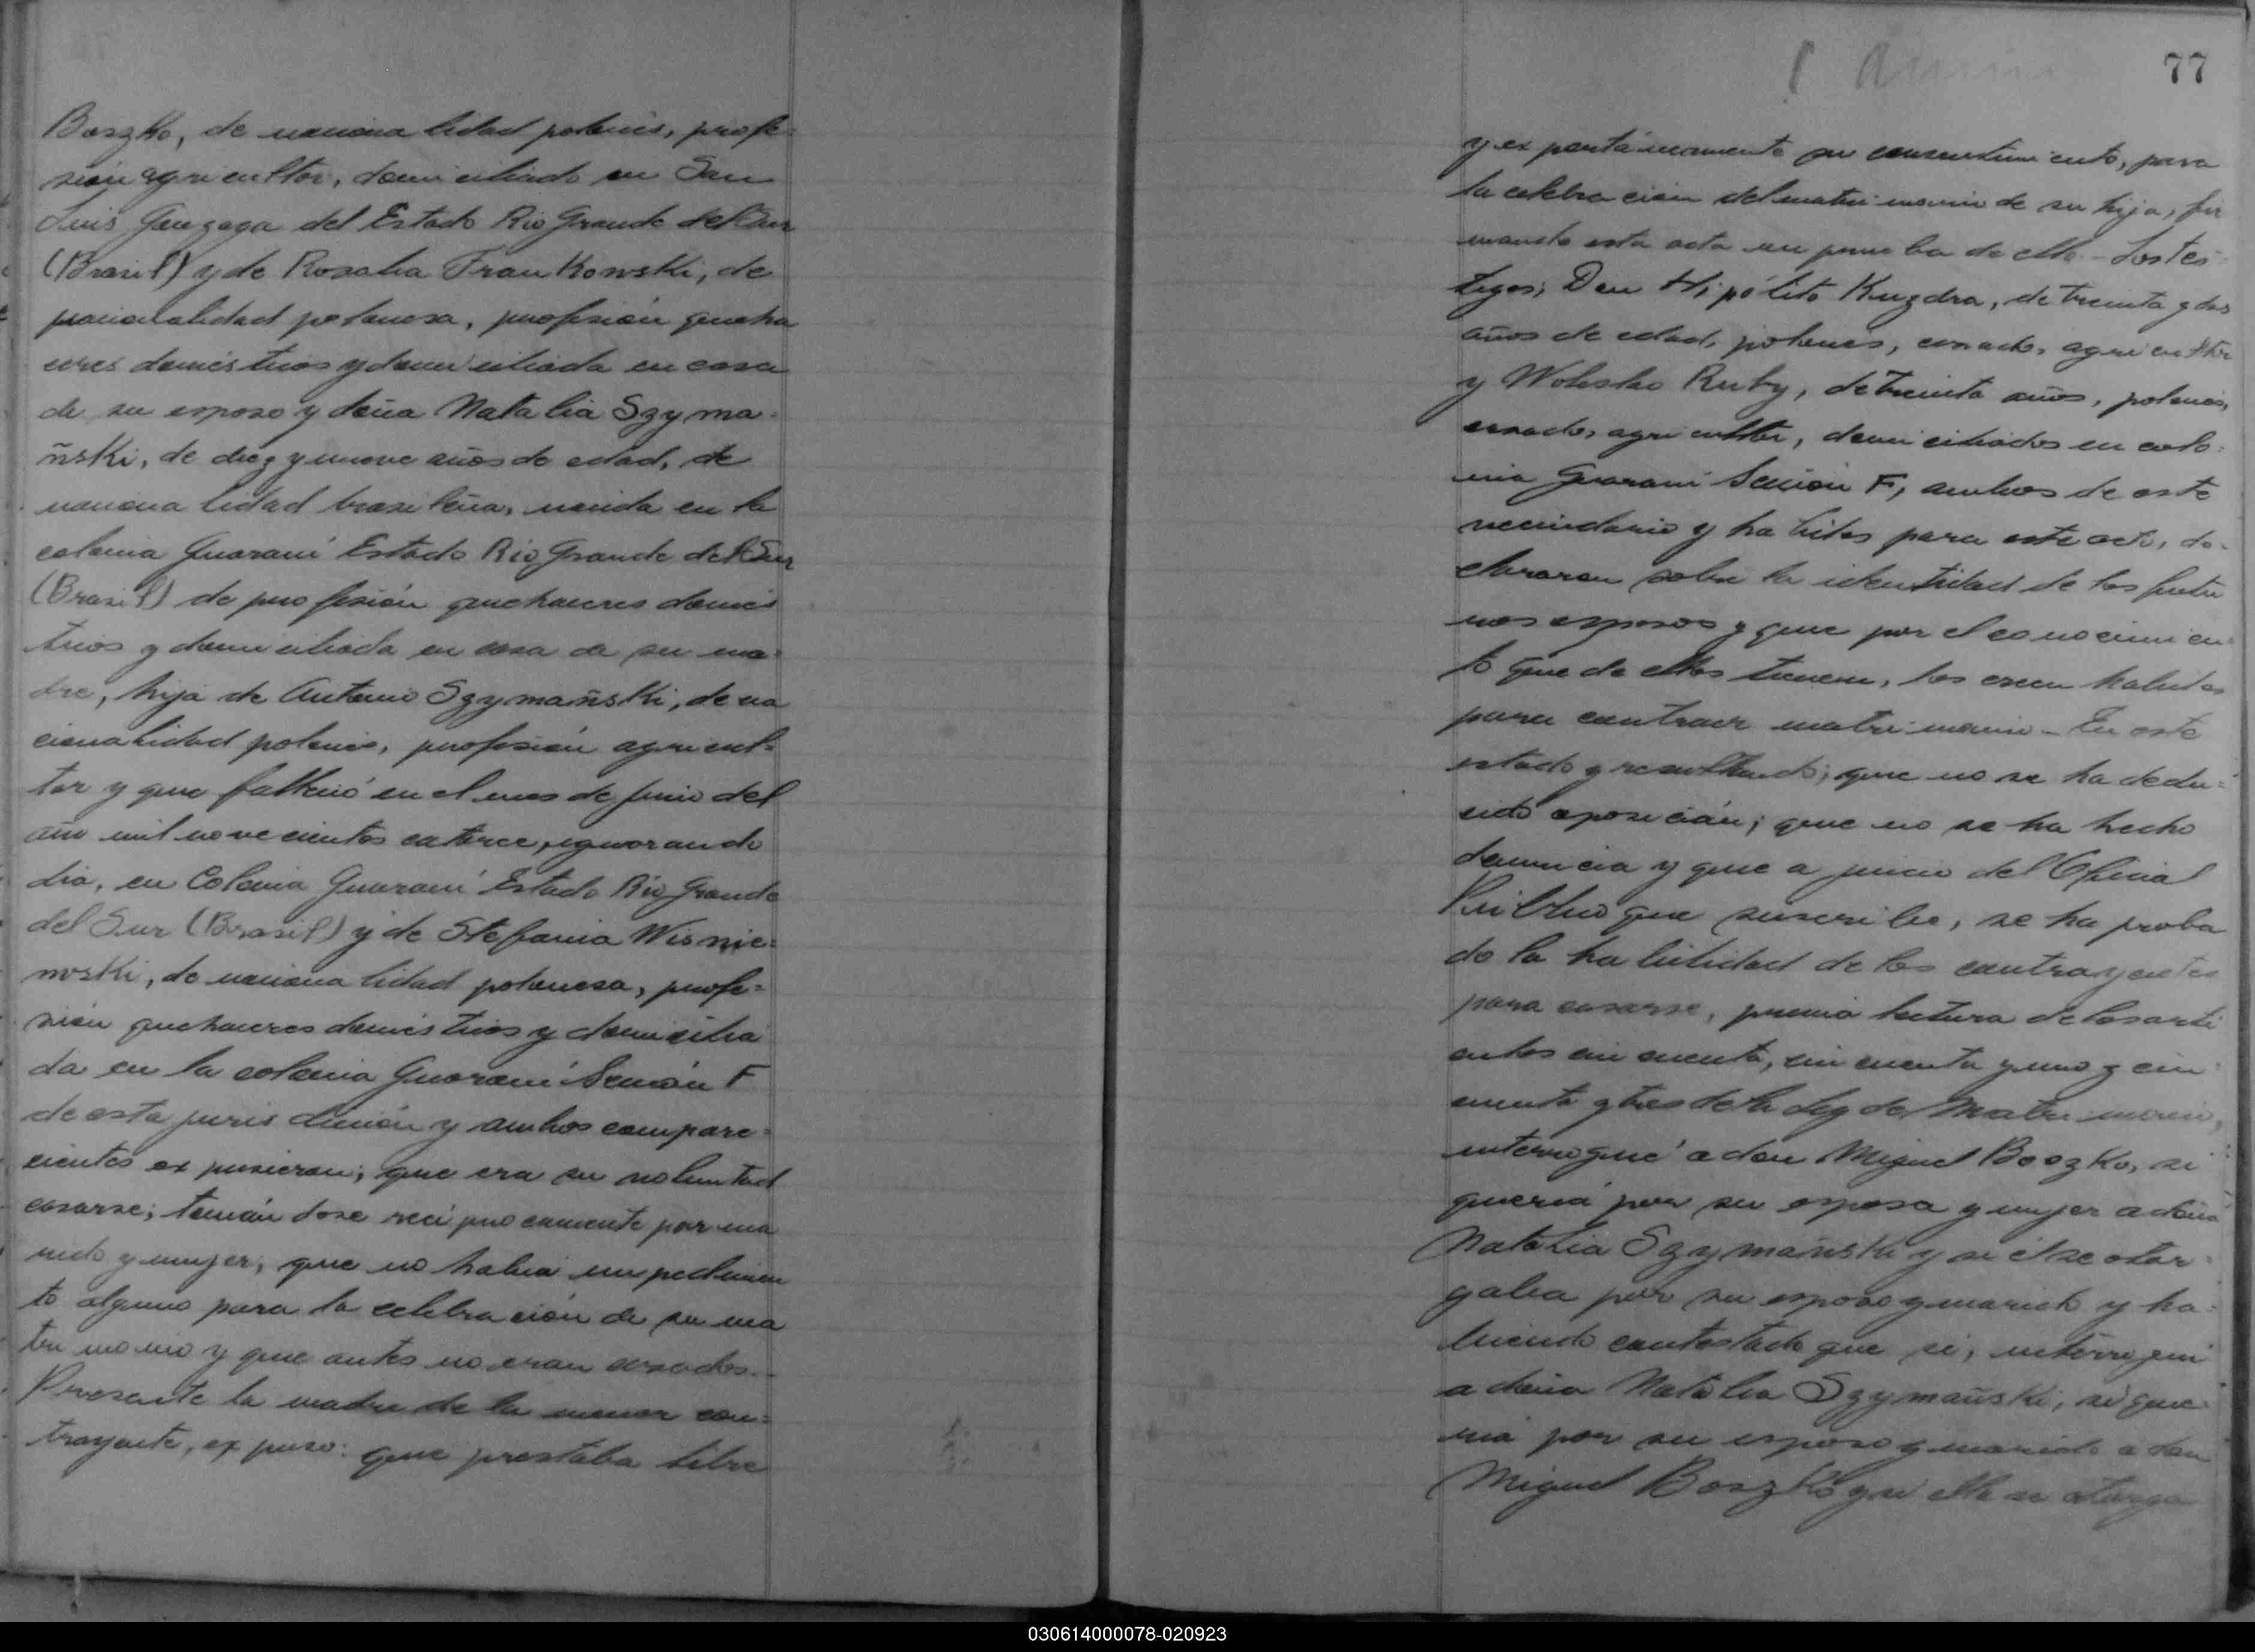 Boszko, de nacionalidad polonés, profe-
sión agricultor, domiciliado en San
Luis Gonzaga del Estado Rio Grande del Sur
(Brasil) y de Rosalia Frankowski, de
nacionalidad polonesa, profesión queha
ceres domésticos y domiciliada en casa
de su esposo y doña Natalia Szyma-
ñski, de diez y nueve años de edad, de
nacionalidad brasileña, nacida en la
colonia Guaraní Estado Rio Grande del Sur
(Brasil) de profesión quehaceres domés
ticos y domiciliada en casa de su ma-
dre, hija de Antonio Szymañski, de na
cionalidad polonés, profesión agricul-
tor y que falleció en el mes de junio del
año mil novecientos catorce, ignorando
dia, en Colonia Guaraní Estado Rio Grande
del Sur (Brasil) y de Stefania Wisnie-
woski, de nacionalidad polonesa, profe-
sión quehaceres domésticos y domicilia
da en la colonia Guaraní Sección F
de esta jurisdicción y ambos compare-
cientes expusieron; que era su voluntad
casarse; tomándose recíprocamente por ma
rido y mujer; que no habia impedimen
to alguno para la celebración de su ma
trimonio y que antes no eran casados.-
Presente la madre de la menor con-
trayente, expuso: que prestaba libre
77
y expontáneamente su consentimiento, para
la celebración del matrimonio de su hija, fir
mando esta acta en prueba de ello - Los tes-
tigos; Don Hipólito Kuzdra, de treinta y dos
años de edad, polonés, casado, agricultor
y Ruby, de treinta años, polonés,
casado, agricultor, domiciliados en colo-
nia Guaraní Sección F, ambos de este
vecindario y habiles para este acto, de-
clararon sobre la identidad de los futu
ros esposos y que por el conocimien-
to que de ellos tienen, los creen habiles
para contraer matrimonio - En este
estado y resultando; que no se ha dedu-
cido oposición; que no se ha hecho
denuncia y que a juicio del Oficial
Público que suscribe, se ha proba
do la habilidad de los contrayentes
para casarse, previa lectura de los arti
culos cincuenta, cincuenta y uno y cin
cuenta y tres de la Ley de Matrimonio,
interrogué a don Miguel Boszko, si
queria por su esposa y mujer a doña
Natalia Szymañski y si él se otor-
gaba por su esposo y marido y ha-
biendo contestado que si, interrogué
a doña Natalia Szymañski, si que-
ria por su esposo y marido a don
Miguel Boszko y si ella se otorga
030614000078-020923